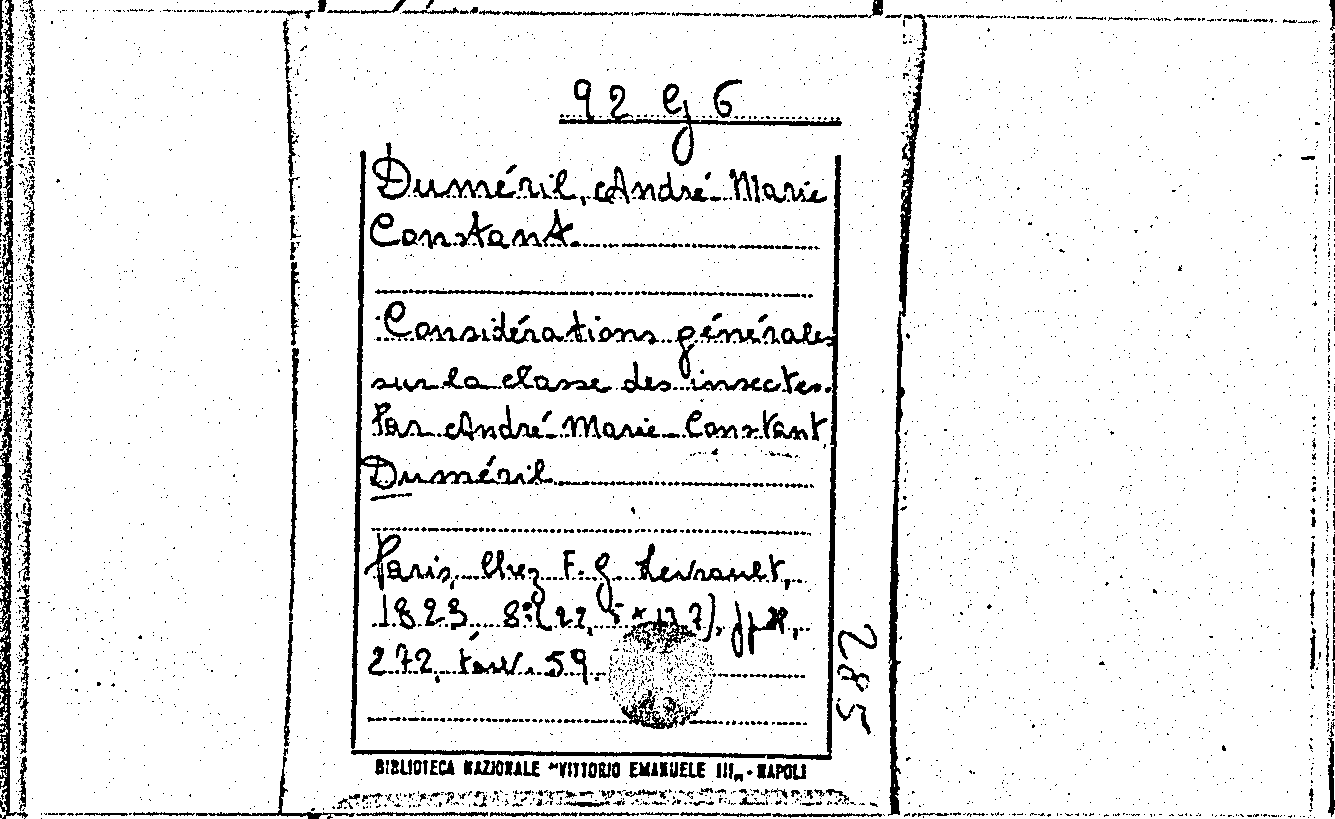 92 G 6
Duméril, André-Marie
Constant.
Considérations générales
sur la classe des insectes.
Par André-Marie-Constant
Duméril
Paris, Chez F. G. Levrault,
1823 8°(22,5×13,7), pp.
272, tav. 59.
285
BIBLIOTECA NAZIONALE "VITTORIO EMANUELE III" - NAPOLI